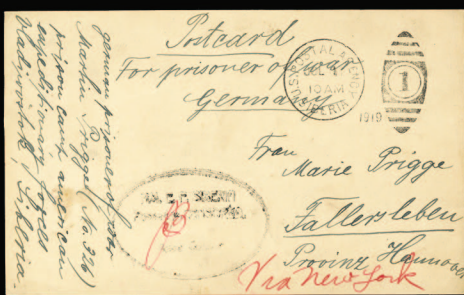 Postcard
For prisoner of war
Germany
U.S. POSTAL AGENCY
SIBERIA
10 AM
1919
1
Frau
Marie Prigge
Fallersleben
Provinz Hannover
Via New York
german prisoner of war
Martin Prigge (No. 326)
prison camp american
expeditionary Forces
Vladivostok, Siberia.